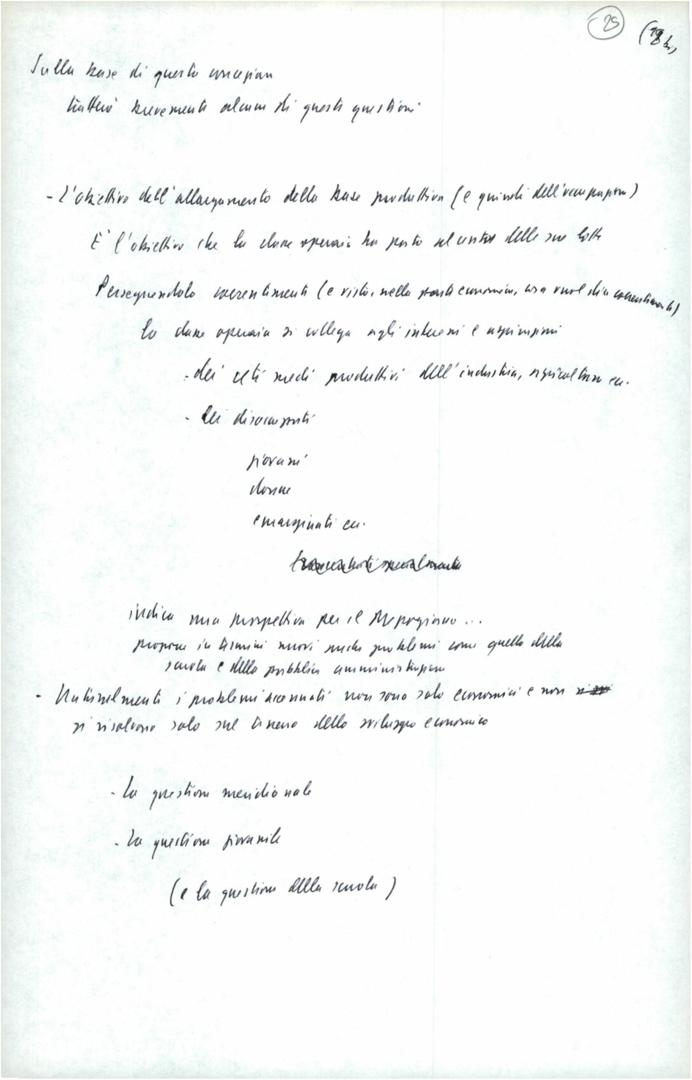 25
Sulla base di questa concezione
tratterò brevemente alcune di queste questioni
- L'obiettivo dell'allargamento della base produttiva (e quindi dell'occupazione)
È l'obiettivo che la classe operaia ha posto al centro delle sue lotte
Perseguendolo coerentemente (e visto, nella parte economica, cosa vuol dire coerentemente)
la classe operaia si collega agli interessi e aspirazioni
- dei ceti medi produttivi dell'industria, agricoltura ecc.
- dei disoccupati
giovani
donne
emarginati ecc.
indica una prospettiva per il Mezzogiorno...
propone in termini nuovi anche problemi come quello della
scuola e della pubblica amministrazione
- Naturalmente i problemi accennati non sono solo economici e non
si risolvono solo sul terreno dello sviluppo economico
- La questione meridionale
- La questione giovanile
(e la questione della scuola)